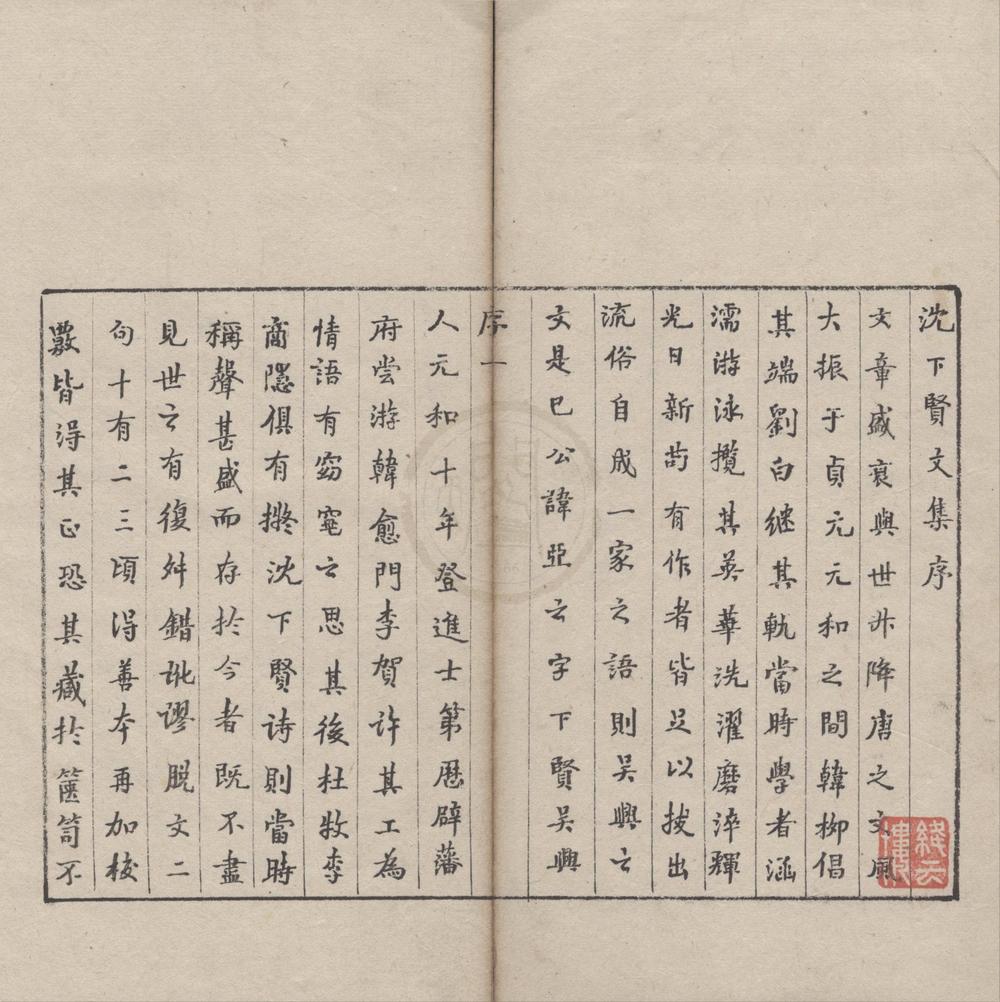 沈下賢文集序
文章盛衰與世升降唐之文風
大振于貞元元和之間韓柳倡
其端劉白继其軌當時學者涵
濡游泳攬其英華洗濯磨淬輝
光日新苟有作者皆足以拔出
流俗自成一家之語則吴興之
文是已公諱亞之字下賢吴興
序一
人元和十年登進士第歴辟藩
府嘗游韓愈門李賀许其工為
情語有窈窕之思其後杜牧李
商隱俱有擬沈下賢诗則當時
稱聲甚盛而存扵今者既不盡
見世之有復舛錯訛謬脱文二
句十有二三頃得善本再加校
覈皆得其正恐其藏扵篋笥不